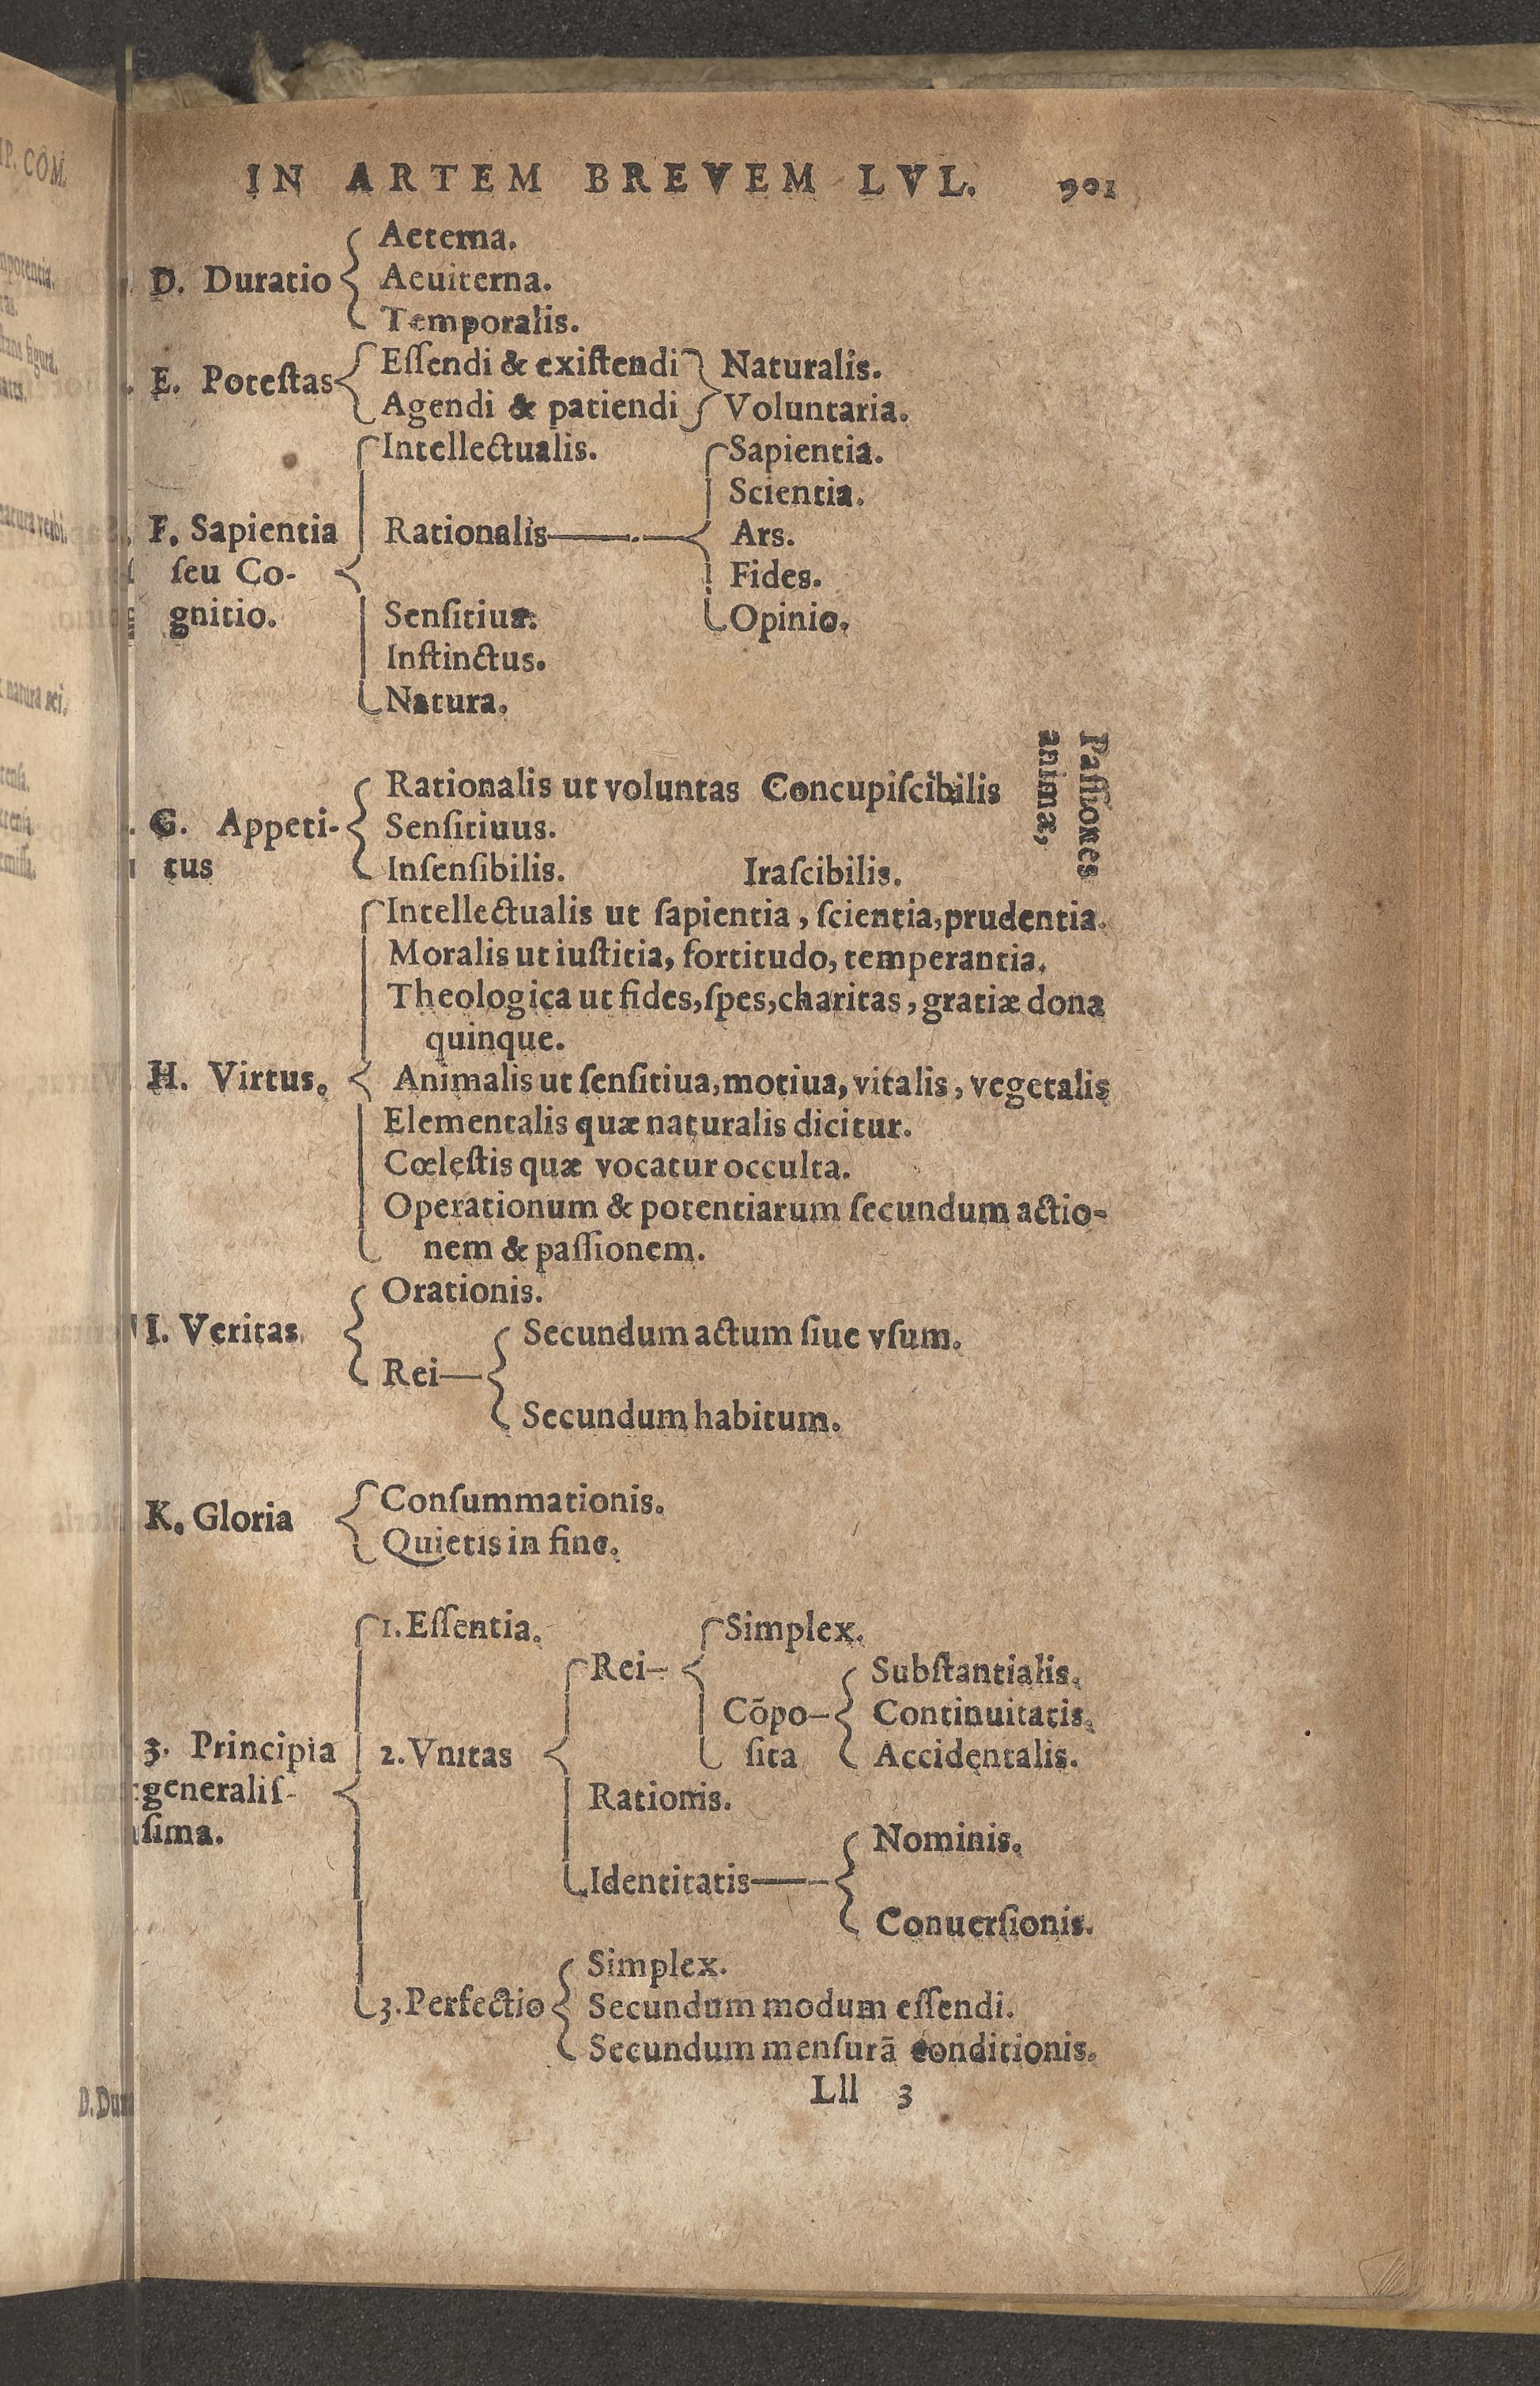 IN ARTEM BREVEM LVL. 901
Aeterna.
D. Duratio Aeuiterna.
Temporalis.
Eſſendi & exiſtendi Naturalis.
E. Poteſtas
Agendi & patiendi Voluntaria.
Intellectualis. Sapientia.
Scientia.
F. Sapientia Rationalis Ars.
ſeu Co- Fides.
gnitio. Senſitiua. Opinio.
Inſtinctus.
Natura.
Rationalis ut voluntas Concupiſcibilis
G. Appeti- Senſitiuus.
tus Inſenſibilis. Iraſcibilis.
Paſſiones
animæ,
Intellectualis ut ſapientia, ſcientia, prudentia.
Moralis ut iuſtitia, fortitudo, temperantia.
Theologica ut fides, ſpes, charitas, gratiæ dona
quinque.
H. Virtus. Animalis ut ſenſitiua, motiua, vitalis, vegetalis
Elementalis quæ naturalis dicitur.
Cœleſtis quæ vocatur occulta.
Operationum & potentiarum ſecundum actio-
nem & paſſionem.
Orationis.
I. Veritas Secundum actum ſiue vſum.
Rei
Secundum habitum.
Conſummationis.
K. Gloria
Quietis in fine.
1. Eſſentia. Simplex.
Rei Subſtantialis.
Cõpo- Continuitatis.
3. Principia 2. Vnitas ſita Accidentalis.
generaliſ- Rationis.
ſima. Nominis.
Identitatis
Conuerſionis.
Simplex.
3. Perfectio Secundum modum eſſendi.
Secundum menſurã conditionis.
Lll 3
D. Dur
IP. COM.